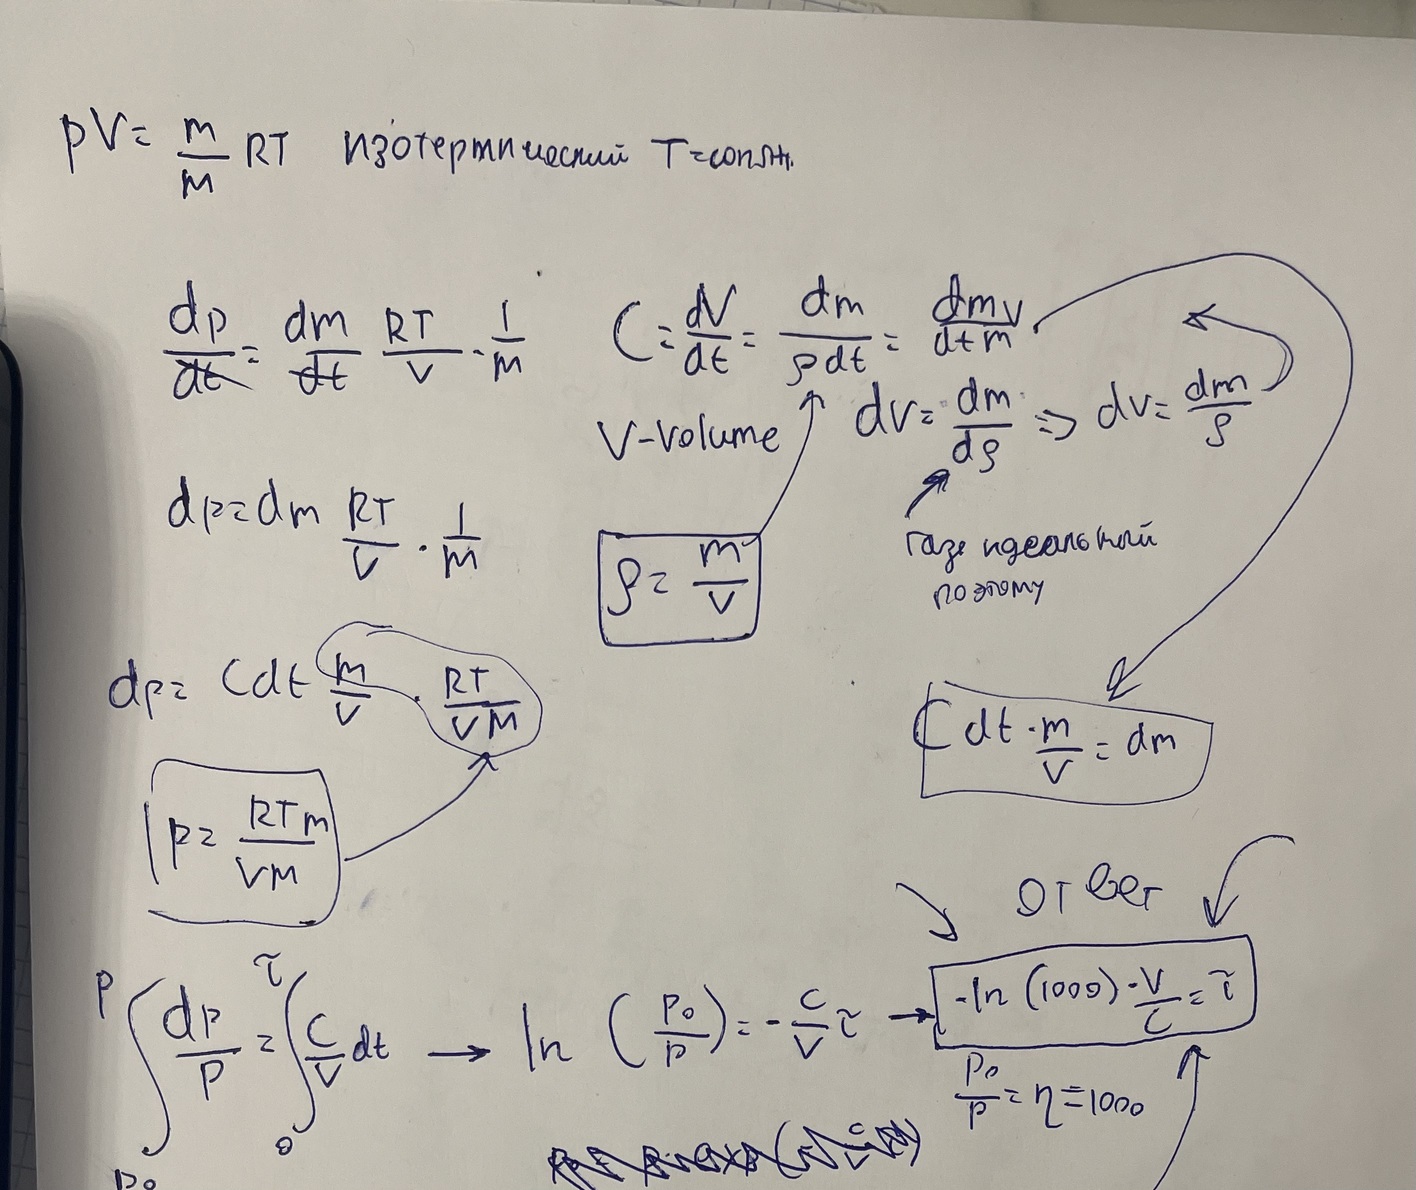 pV = m/M RT изотермический T=const.
dp/dt = dm/dt RT/V · 1/M
C = dV/dt = dm/ρdt = dmV/dtm
V-Volume
dV = dm/dρ ⇒ dV = dm/ρ
dp = dm RT/V · 1/M
ρ = m/V
Газ идеальный
поэтому
dp = Cdt m/V · RT/VM
Cdt · m/V = dm
p = RTm/VM
ответ
∫_{p0}^{p} dp/p = ∫_0^τ C/V dt → ln (p0/p) = - C/V τ → -ln (1000) · V/C = τ
p0/p = η = 1000